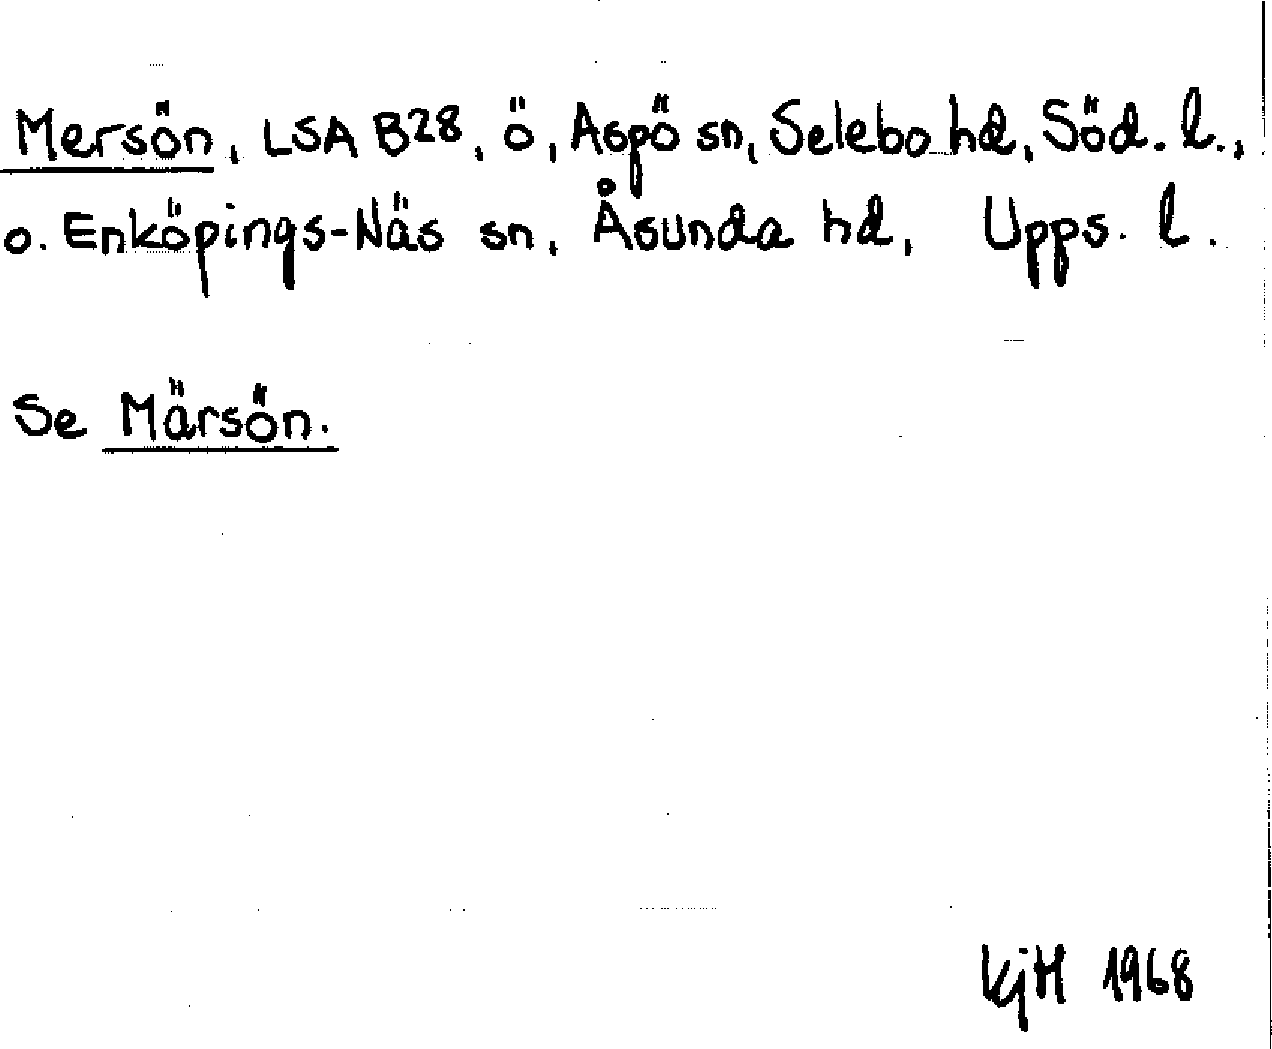 Mersön, LSA B28, ö, Aspö sn, Selebo hd, Söd. l.,
o. Enköpings-Näs sn, Åsunda hd, Upps. l.
Se Märsön.
KjH 1968